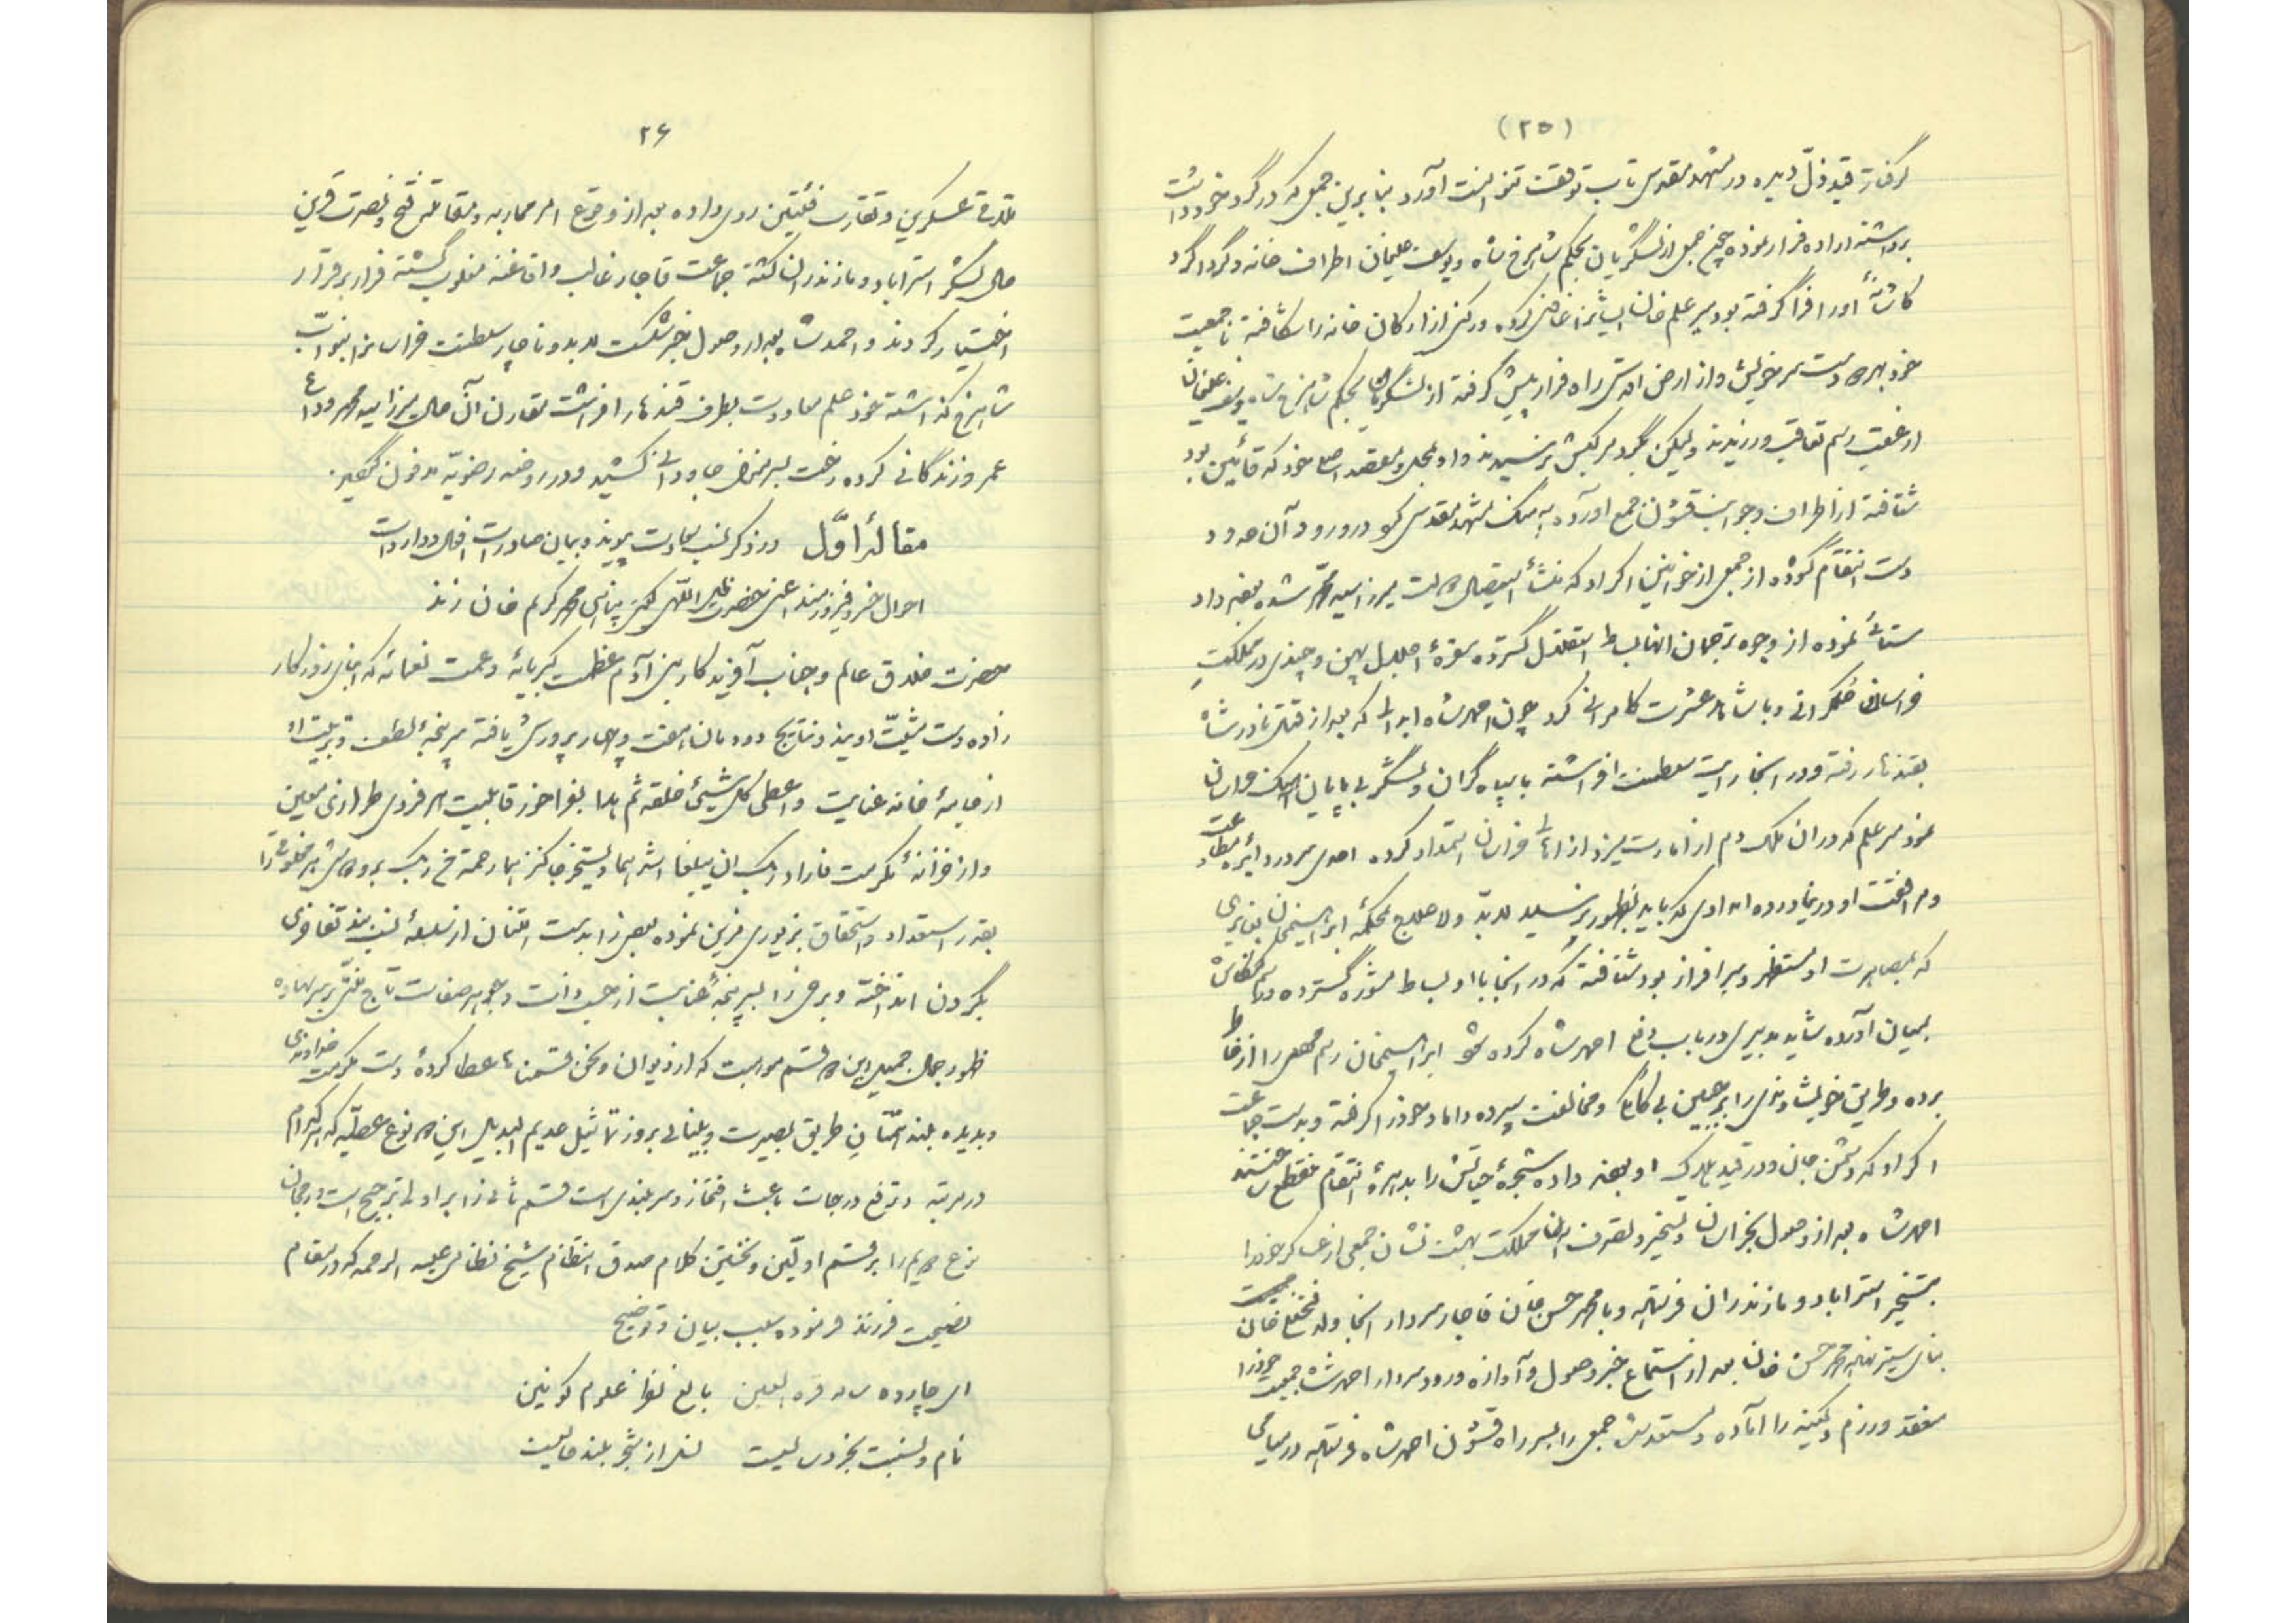 (۲۵)
گرفتار قید ذلّ دیده در مشهد مقدس تاب توقف نتوانست آورد بنابرین جمعی که در گرد خود داشت
برداشته اراده فرار نموده جمعی از لشگریان بحکم شاهرخ شاه و یوسف علیخان اطراف خانه و گرداگرد
کاشانهٔ او را فرا گرفته بودند میر علم خان کرده و رکنی از ارکان خانه را شکافته با جمعیت
خود بدر رفت سر خویش و از ارض اقدس راه فرار پیش گرفته از لشگریان بحکم شاهرخ شاه و یوسف علیخان
از عقب رسم تعاقب ورزیدند و لیکن بگرد مرکبش نرسیدند و او بمحل و مقصد اصلی خود که قائین بود
شتافته از اطراف و جوانب قشون جمع آورده آهنگ مشهد مقدس کرد در ورود آن حدود
دست انتقام گشوده از جمعی از خوانین اکراد که منشأ استیصال دولت میرزا سید محمد شده بودند داد
ستانی نموده از وجوه ترجمان آنها بساط استقلال گسترده سفرهٔ اجلال پهن و چندی در مملکت
خراسان حکمرانی و با شاهد عشرت کامرانی کرد چون احمد شاه ابدالی که بعد از قتل نادرشاه
بقندهار رفته و در آنجا رایت سلطنت افراشته با سپاه گران و لشگر بی پایان آهنگ خراسان
نمود میر علم که در آن ملک دم از امارت میزد از اهالی خراسان استمداد کرده احدی سر در دایره مطاوعت
و موافقت او در نیاورده امدادی که باید بظهور نرسید لابدّ و لاعلاج بمحکمهٔ ابراهیمخان بغایری
که بمصاهرت او مستظهر و سرافراز بود شتافته که در آنجا با او بساط مشوره گسترده
بمیان آورده شاید تدبیری در باب دفع احمد شاه کرده شود ابراهیمخان رسم را از خاطر
برده و طریق خویشاوندی را بر جبین بی کانگی و مخالفت سپرده داماد خود را گرفته و بدست جماعت
اکراد که دشمن جان و در قید هلاک او بودند داده شجرهٔ حیاتش را بدهرهٔ انتقام منقطع ساختند
احمد شاه بعد از وصول بخراسان و تسخیر و تصرف آن مملکت بهشت نشان جمعی از عساکر خود را
بتسخیر استراباد و مازندران فرستاد و با محمد حسن خان قاجار سردار آنجا ولد فتحعلی خان
بنای ستیز نهاد محمد حسن خان بعد از استماع خبر وصول و آوازه ورود سردار احمد شاه جمعیت خود را
منعقد و رزم و کینه را آماده و مستعد شد جمعی را بسر راه قشون احمد شاه فرستاد در میامی
۲۶
تلاقی عسکرین و تقارب فئتین روی داده بعد از وقوع امر محاربه و مقاتله فتح و نصرت قرین
حال لشگر استراباد و مازندران گشته جماعت قاجار غالب و افاغنه مغلوب گشته فرار بر قرار
اختیار کردند و احمد شاه بعد از وصول خبر شکست لابد و ناچار سلطنت خراسان را بنوّاب
شاهرخ گذاشته خود علم معاودت بطرف قندهار افراشت مقارن آن حال میرزا سید محمد وداع
عمر و زندگانی کرده رخت بسر منزل جاودانی کشید و در روضه رضویّه مدفون گردید.
مقالهٔ اوّل در ذکر نسب سعادت پیوند و بیان صادرات افعال و واردات
احوال خسرو فیروزمند اعنی حضرت ظلّ اللّهی گیتی پناهی محمد کریم خان زند
حضرت خلاق عالم و جناب آفریدگار بنی آدم عظمت کبریائه و عمت نعمائه که ابنای روزگار
زاده دست مشیّت اویند و نتایج دودمان هفت و چهار پرورش یافته سرپنجهٔ لطف و تربیت او
از جامهٔ خانه عنایت و اعطی کل شیئ خلقه ثم هدا بفراخور قابلیت هر فردی طرازی معین
و از خزانهٔ مکرمت فاراد ربک ان یبلغا اشدهما و یستخرجا کنزهما رحمة من ربک بر و دوش هر مخلوقی را
بقدر استعداد و استحقاق بزیوری مزین نموده بعضی را بدست امتنان از سلسلهٔ نسب عقد تفاخری
بگردن انداخته و برخی را بسرپنجهٔ عنایت از حسب ذات و جوهر صفات تاج بر سر نهاده
ظهور جمال جمیل این دو قسم موهبت که از دیوان و نحن قسمنا عطا کردهٔ دست مکرمت خداوندی
و بدیده بلند آشنایان طریق بصیرت و بینائی بروز تماثیل عدیم البدیل این دو نوع عطیّه که هر کدام
در مرتبه و ترفع درجات باعث افتخار و سربلندی است قسم ثانی را بر اولی ترجیح است و رجحان
نوع دویم را بر قسم اولین و نخستین کلام صدق انتظام شیخ نظامی علیه الرحمه که در مقام
نصیحت فرزند فرموده سبب بیان و توضیح
ای چارده ساله قرة العین بالغ نظر علوم کونین
نام و نسبت بخردی است نسل از شجر بلند خالیست